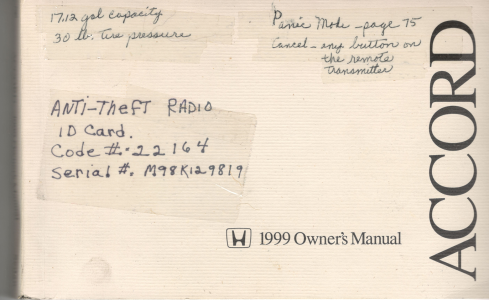 17.12 gal capacity
30 lb. tire pressure
Panic Mode - page 75
Cancel - any button on
the remote
transmitter
ANTi-THeFT RADIO
ID Card.
Code #. 22164
Serial #. M98K129819
1999 Owner's Manual
ACCORD